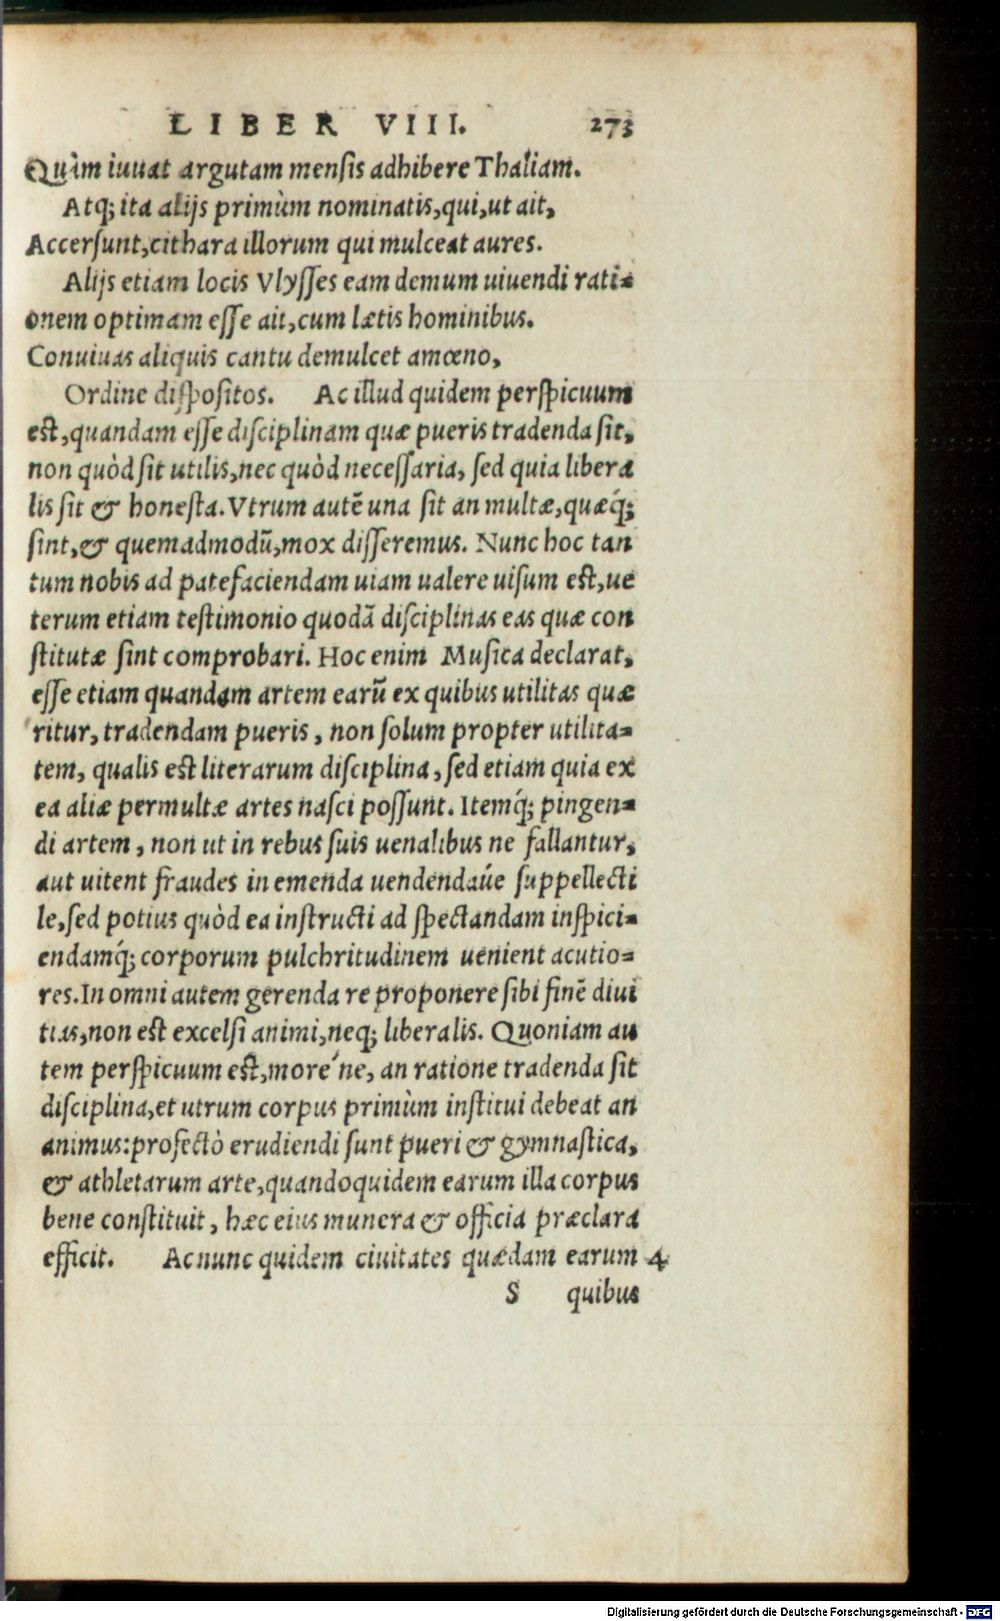 LIBER VIII. 273
Quàm iuuat argutam mensis adhibere Thaliam.
Atq; ita alijs primùm nominatis, qui, ut ait,
Accersunt, cithara illorum qui mulceat aures.
Alijs etiam locis Vlysses eam demum uiuendi rati-
onem optimam esse ait, cum lætis hominibus.
Conuiuas aliquis cantu demulcet amœno,
Ordine dispositos. Ac illud quidem perspicuum
est, quandam esse disciplinam quæ pueris tradenda sit,
non quòd sit utilis, nec quòd necessaria, sed quia libera
lis sit & honesta. Vtrum autē una sit an multæ, quæq́;
sint, & quemadmodū, mox disseremus. Nunc hoc tan
tum nobis ad patefaciendam uiam ualere uisum est, ue
terum etiam testimonio quodã disciplinas eas quæ con
stitutæ sint comprobari. Hoc enim Musica declarat,
esse etiam quandam artem earū ex quibus utilitas quæ
ritur, tradendam pueris, non solum propter utilita-
tem, qualis est literarum disciplina, sed etiam quia ex
ea aliæ permultæ artes nasci possunt. Itemq́; pingen-
di artem, non ut in rebus suis uenalibus ne fallantur,
aut uitent fraudes in emenda uendendaúe suppellecti
le, sed potius quòd ea instructi ad spectandam inspici-
endamq́; corporum pulchritudinem uenient acutio-
res. In omni autem gerenda re proponere sibi finē diui
tias, non est excelsi animi, neq; liberalis. Quoniam au
tem perspicuum est, more´ne, an ratione tradenda sit
disciplina, et utrum corpus primùm institui debeat an
animus: profectò erudiendi sunt pueri & gymnastica,
& athletarum arte, quandoquidem earum illa corpus
bene constituit, hæc eius munera & officia præclara
efficit. Ac nunc quidem ciuitates quædam earum 4
S quibus
Digitalisierung gefördert durch die Deutsche Forschungsgemeinschaft - DFG